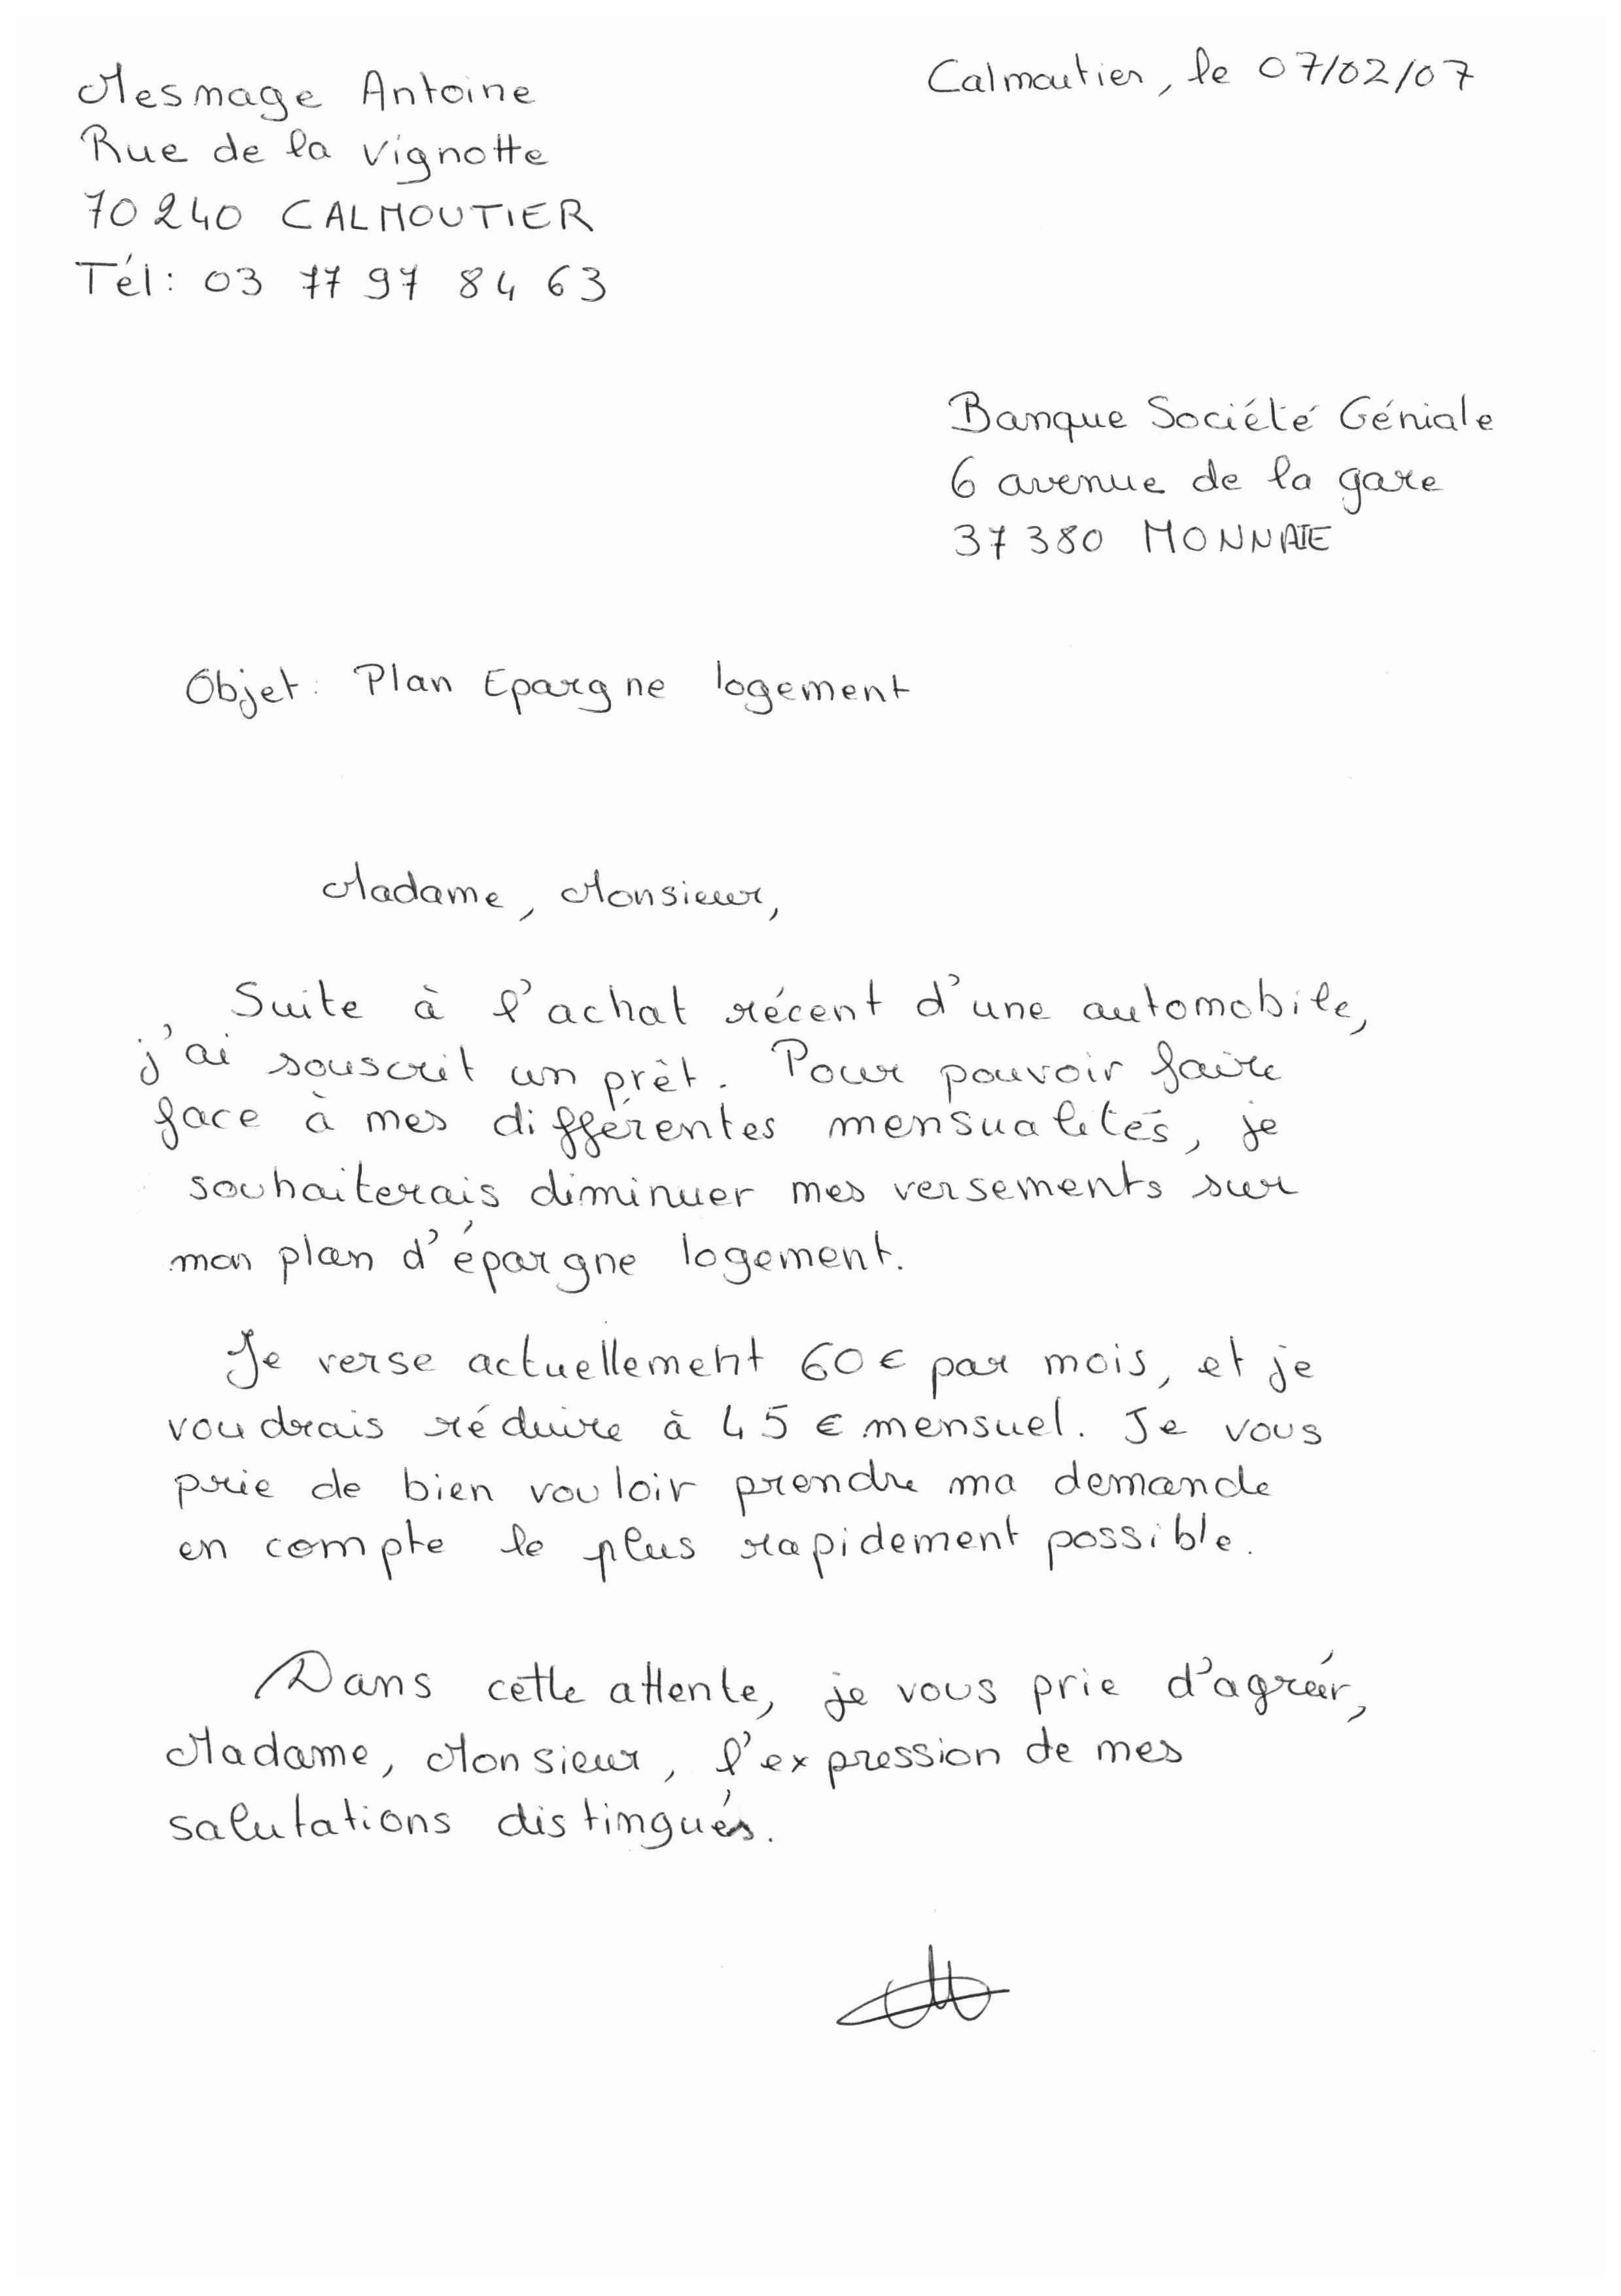 Mesmage Antoine
Calmoutier, le 07/02/07
Rue de la vignotte
70240 CALMOUTIER
Tél: 03 77 97 84 63
Banque Société Géniale
6 avenue de la gare
37380 MONNAIE
Objet: Plan Epargne logement
Madame, Monsieur,
Suite à l'achat récent d'une automobile,
j'ai souscrit un prêt. Pour pouvoir faire
face à mes différentes mensualités, je
souhaiterais diminuer mes versements sur
mon plan d'épargne logement.
Je verse actuellement 60€ par mois, et je
voudrais réduire à 45 € mensuel. Je vous
prie de bien vouloir prendre ma demande
en compte le plus rapidement possible.
Dans cette attente, je vous prie d'agréér,
Madame, Monsieur, l'expression de mes
salutations distingués.